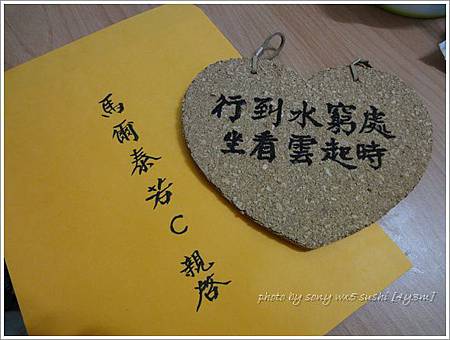 馬爾泰若C 親啓
行到水窮處
坐看雲起時
photo by sony wx5 sushi [4y3m]